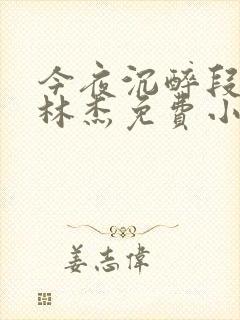 今夜沉醉段
林杰免費小
姜志偉